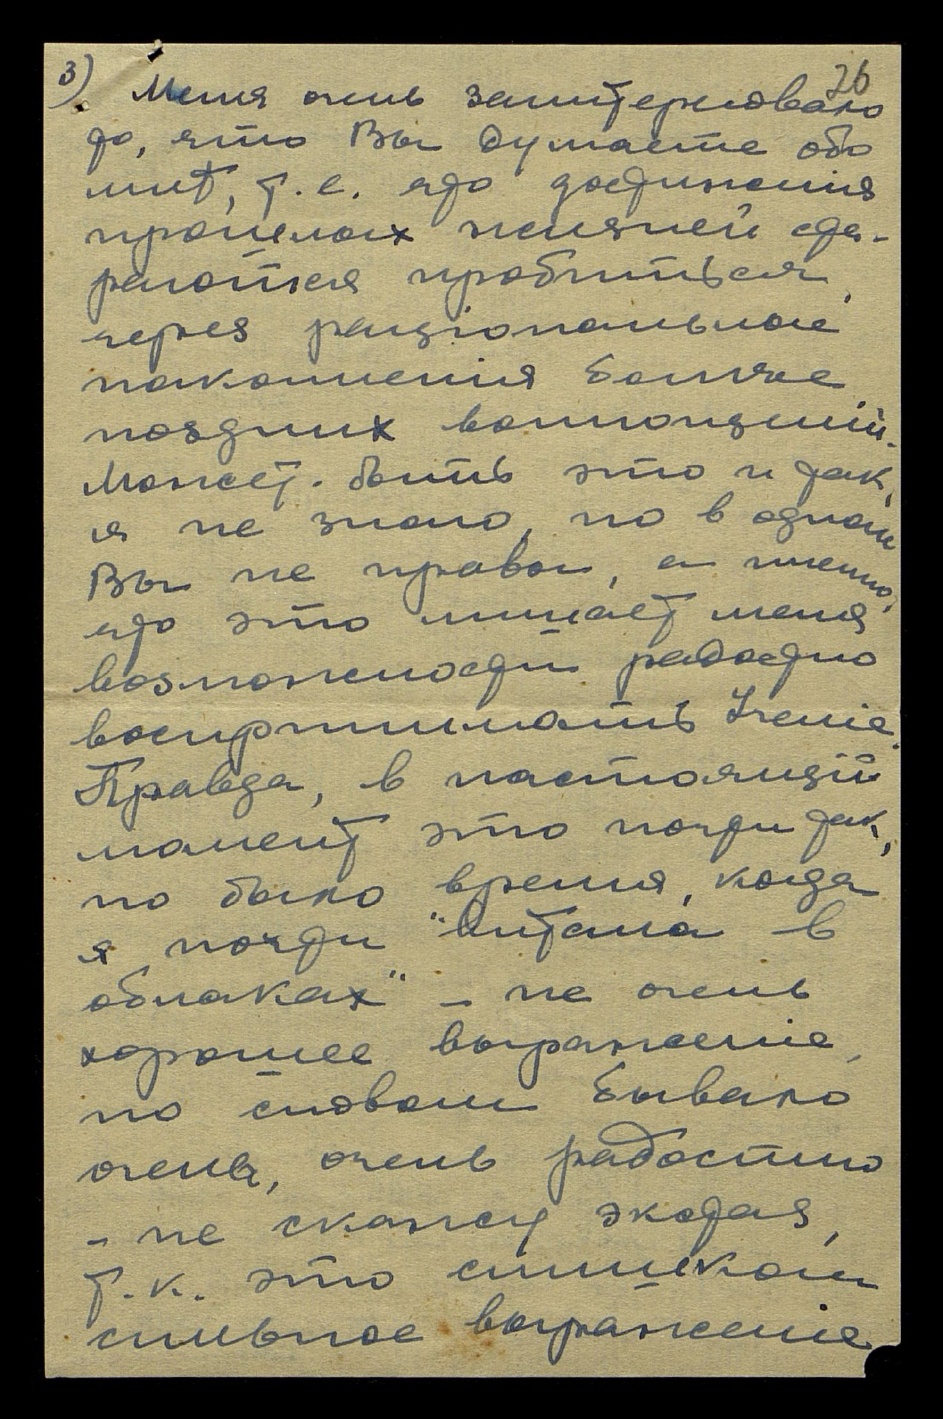 3) 26
Меня очень заинтересовало
то, что Вы думаете обо
мнѣ, т.е. что достиженія
прошлых жизней ста-
раются пробиться
через раціональные
накопленія более
поздних воплощеній.
Может. быть это и так,
я не знаю, но в одном
Вы не правы, а именно,
что это лишает меня
возможности радостно
воспринимать Ученіе.
Правда, в настоящій
момент это почти так,
но было время, когда
я почти "витала в
облаках" – не очень
хорошее выраженіе,
но словом бывало
очень, очень радостно
– не скажу экстаз,
т.к. это слишком
сильное выраженіе